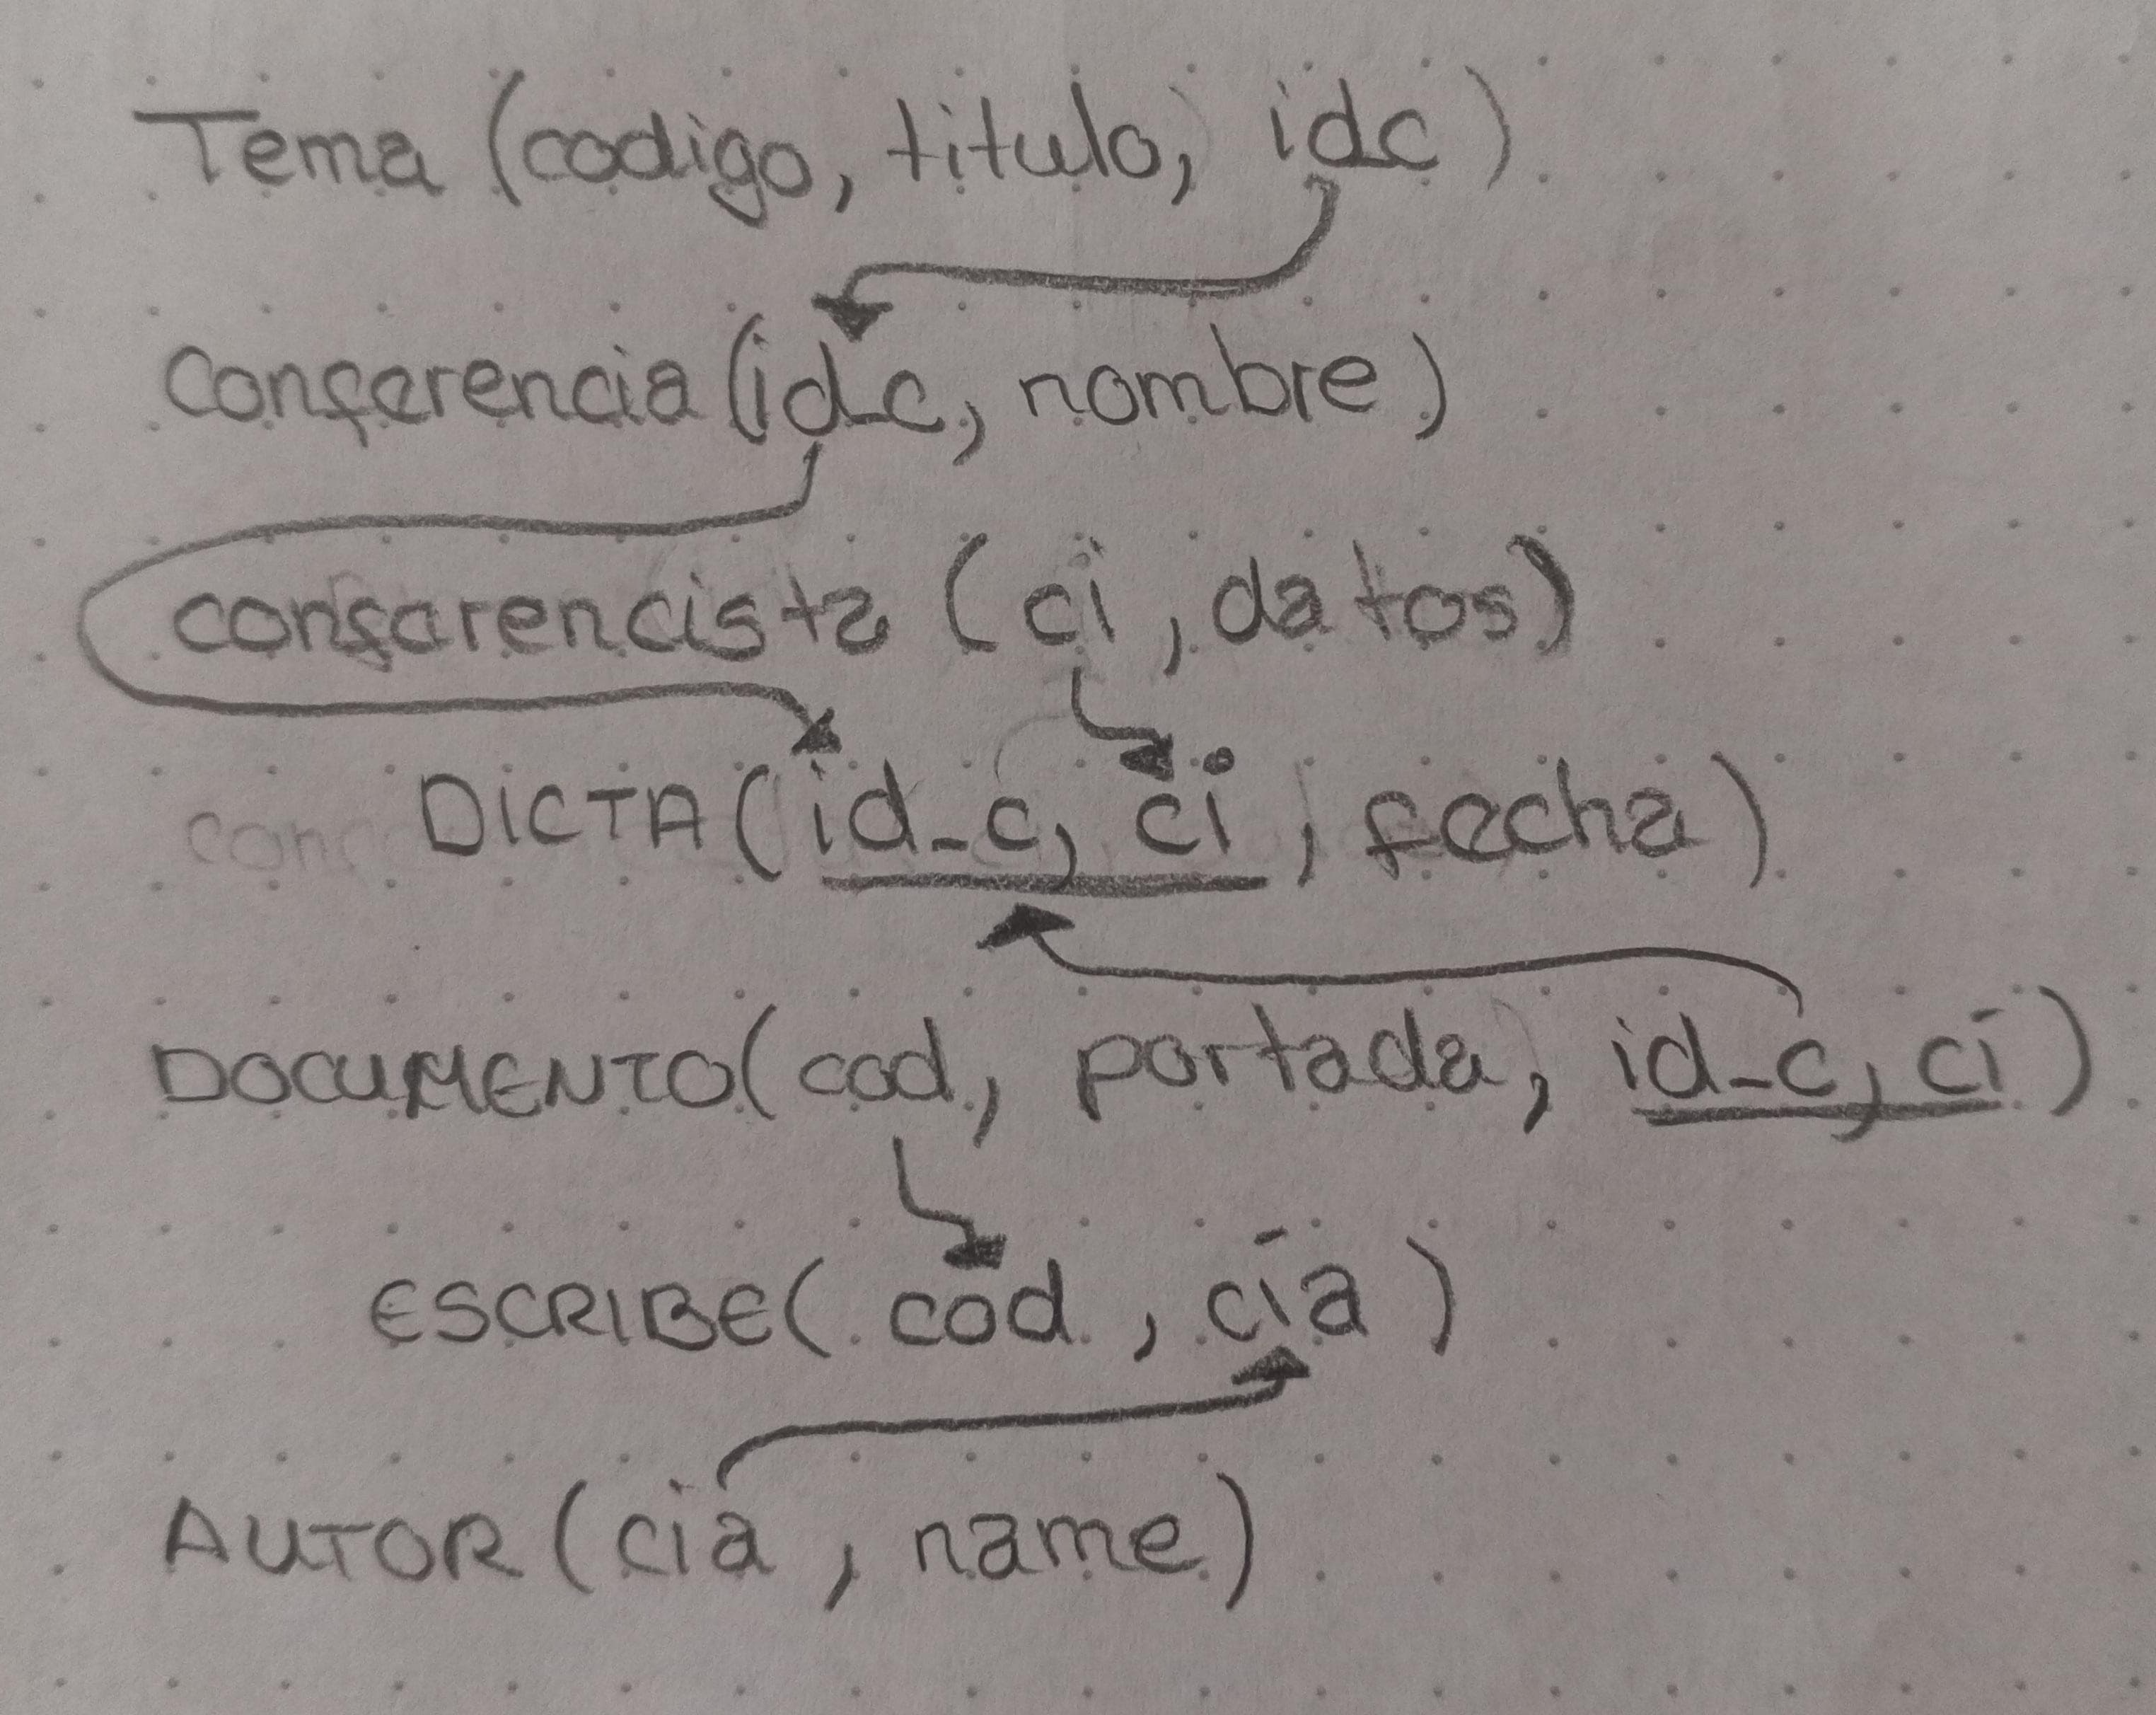 Tema (codigo, titulo, idc)
Conferencia (id_c, nombre)
conferencista (ci, datos)
DICTA (id_c, ci, fecha)
DOCUMENTO (cod, portada, id_c, ci)
ESCRIBE (cod, cia)
AUTOR (cia, name)